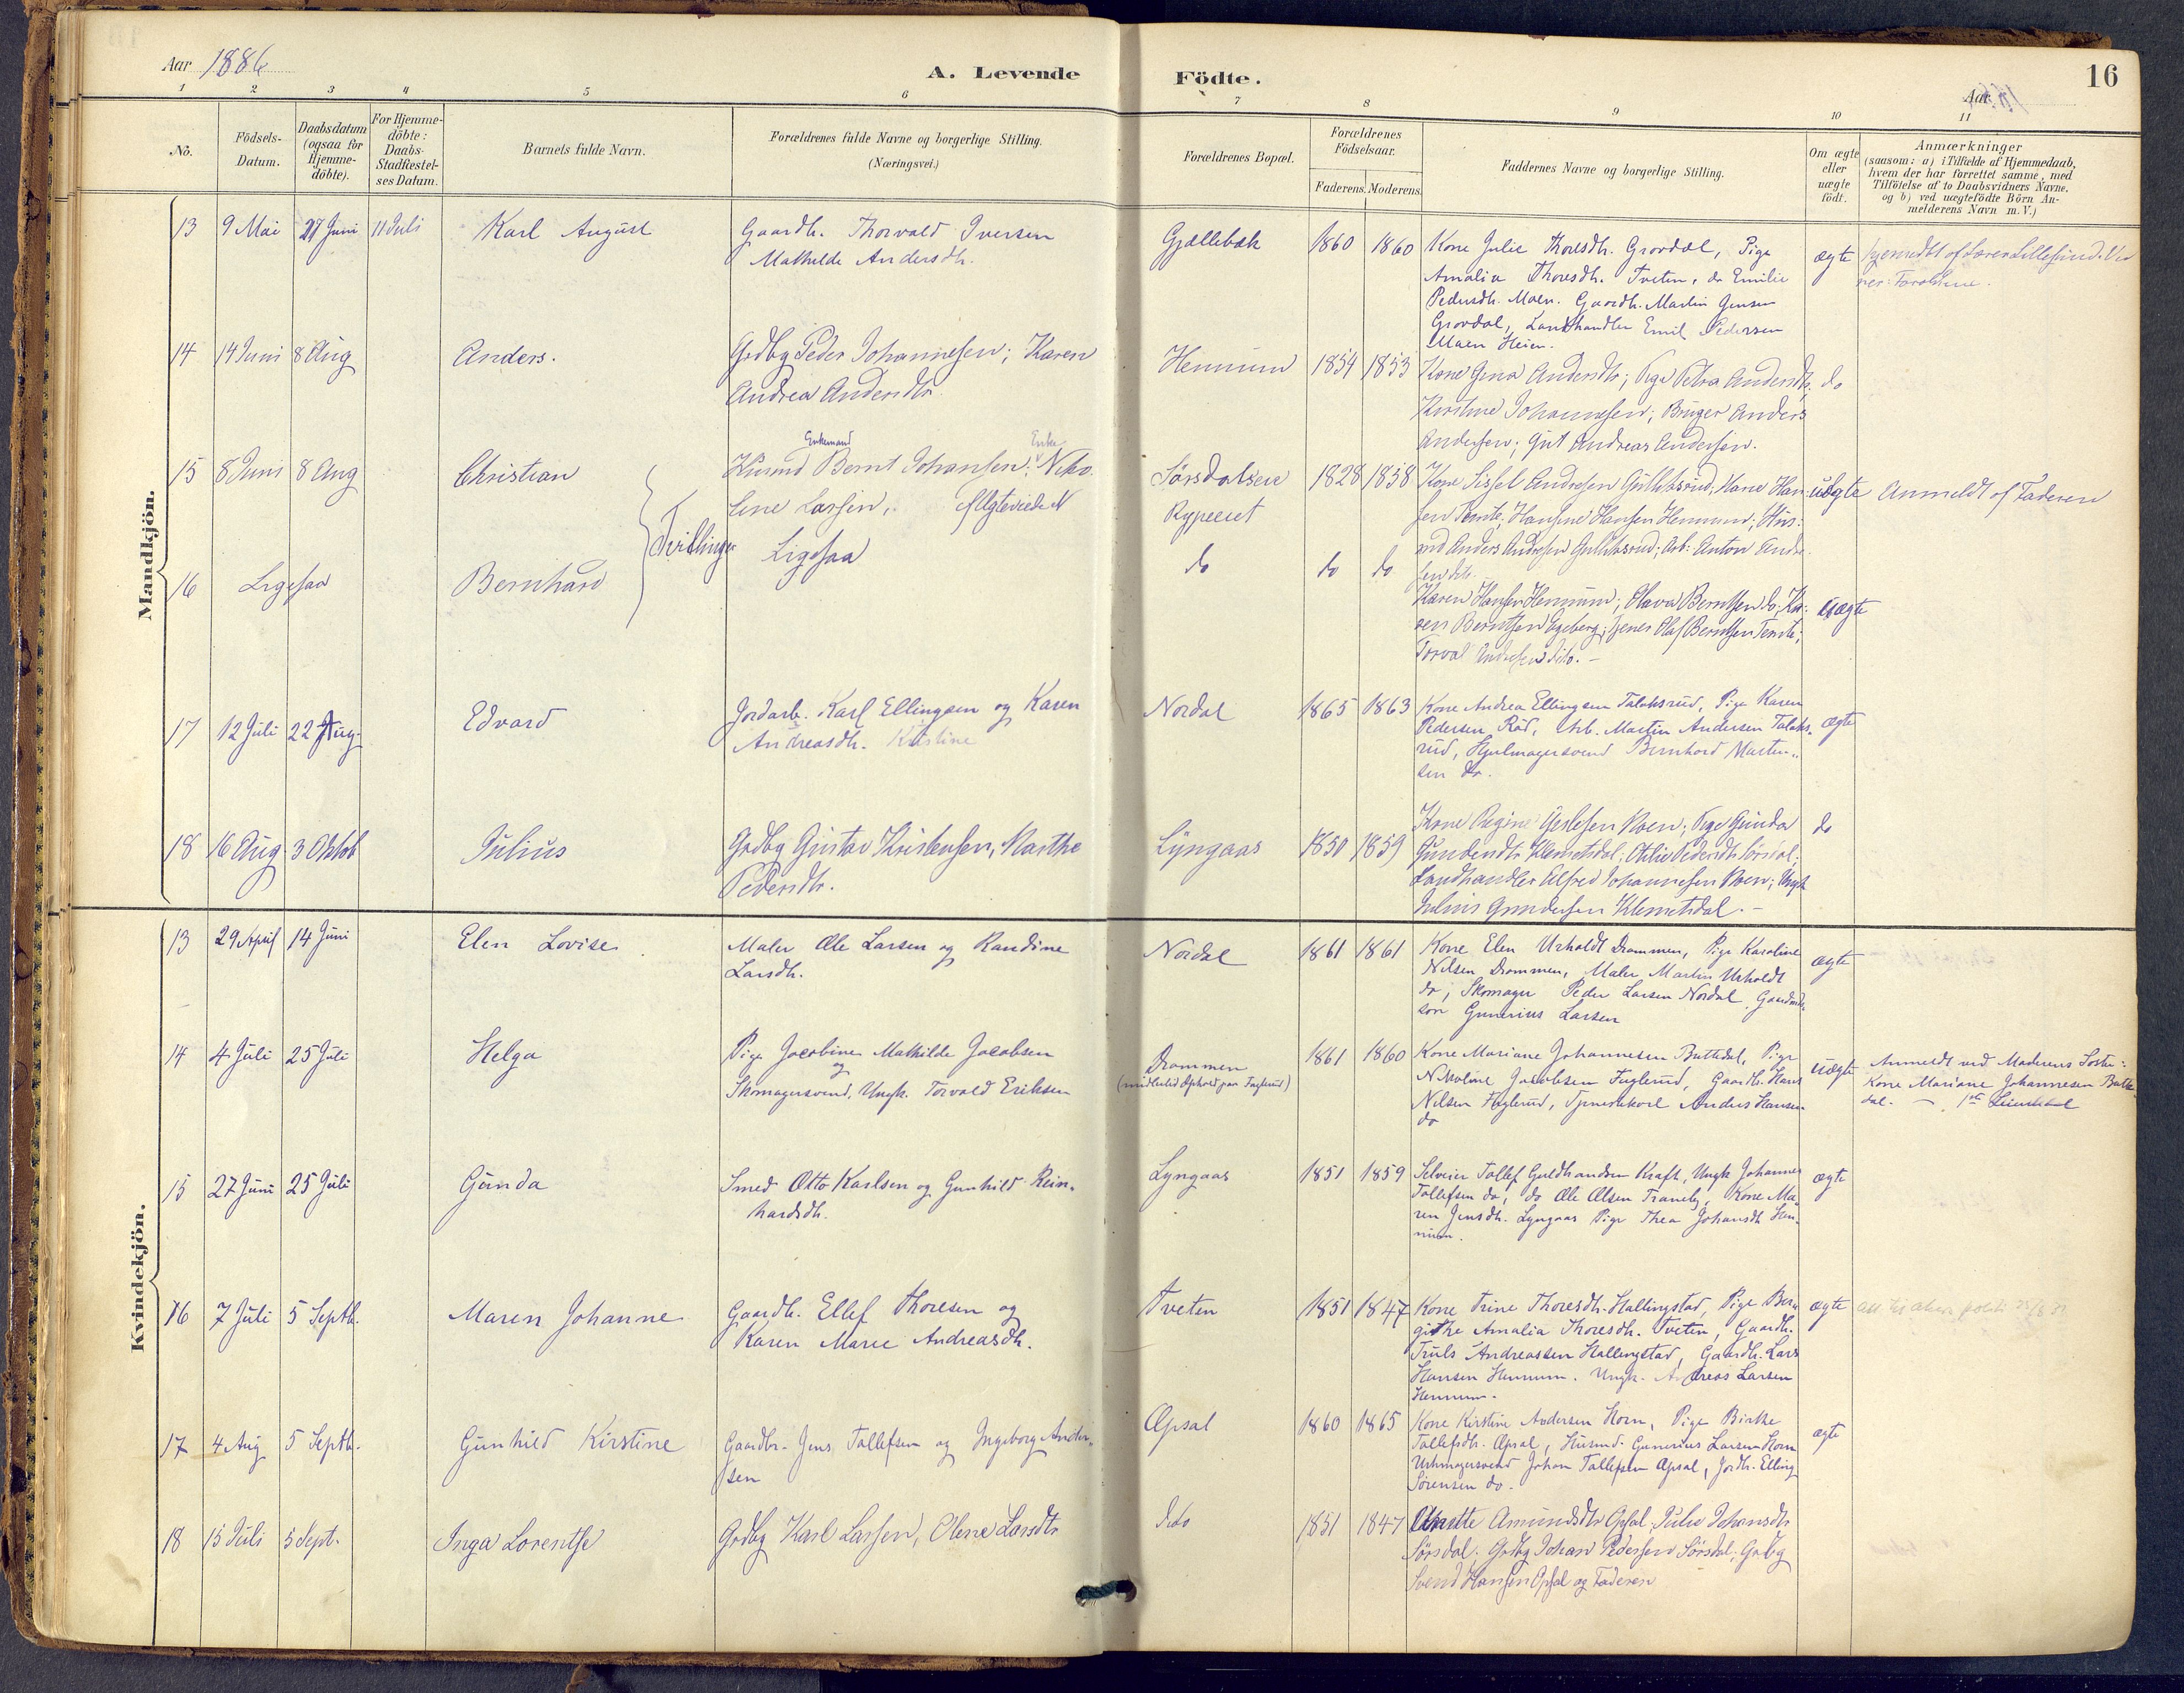 Aar 1886
A. Levende Födte.
16
Aar
1 2 3 4 5 6 7 8 9 10 11
No.
Födsels-
Datum.
Daabsdatum
(ogsaa for
Hjemme-
döbte).
For Hjemme-
döbte:
Daabs-
Stadfæstel-
ses Datum.
Barnets fulde Navn.
Forældrenes fulde Navne og borgerlige Stilling.
(Næringsvei.)
Forældrenes Bopæl.
Forældrenes
Födselsaar.
Faderens. Moderens.
Faddernes Navne og borgerlige Stilling.
Om ægte
eller
uægte
födt.
Anmærkninger
(saasom: a) i Tilfælde af Hjemmedaab,
hvem der har forrettet samme, med
Tilföielse af to Daabsvidners Navne.
og b) ved uægtefödte Börn An-
melderens Navn m. V.)
Mandkjön.
13 9 Mai 27 Juni 11 Juli Karl August
Gaardb. Thorvald Iversen
Mathilde Andersdh.
Gjællebæk 1860 1860
Kone Julie Thoresdh. Grovdal, Pige
Amalia Thoresdh. Tveten, do Emilie
Pedersdh. Moen. Gaardb. Martin Jensen
Grovdal, Landhandler Emil Pedersen
Moen Heien.
ægte
14 14 Juni 8 Aug Anders.
Grdbg Peder Johannesen; Karen
Andrea Andersdtr.
Hennum 1854 1853
Kone Gina Andersdtr; Pige Petra Andersdtr;
Kirstine Johannesen; Bruger Anders
Andersen; Gut Andreas Andersen.
do
15 8 Juni 8 Aug Christian
Enkemand Enke
Husmd Bernt Johansen; Niko-
line Larsen,
Tvillinger
Sørsdalseie
1828 1858
Kone Sissel Andresen Gulliksrud;
uægte Anmeldt af Faderen
16 Ligesaa Bernhard
Ligesaa
do do do
Karen Hansen Hennum; Olava Berntsen do; Ka-
ren Berntsen
uægte
17 12 Juli 22 Aug. Edvard
Jordarb. Karl Ellingsen og Karen
Andreasdh. Kristine
Nordal 1865 1863
Kone Andrea Ellingsen Talaksrud, Pige Karen
Pedersen Röd, Arb. Martin Andersen Talaks-
rud, Hjulmagersvend Bernhard Marten-
sen do.
ægte
18 16 Aug 3 Oktob Julius
Grdbg Gustav Kristensen, Marthe
Pedersdtr.
Lyngaas 1850 1859
Kone Regine Gislesen Moen; Pige Gunda
Gundersdtr Klemetsdal; Otilie Pedersdtr Sørsdal;
Landhandler Alfred Johannesen Moen; Ungk
Julius Gundersen Klemetsdal. -
do
Kvindekjön.
13 29 April 14 Juni Elen Lovise
Maler Ole Larsen og Randine
Larsdh.
Nordal 1861 1861
Kone Elen Urholdt Drammen, Pige Karoline
Nilsen Drammen, Maler Martin Urholdt
do, Skomager Peder Larsen Nordal, Gaardm-
søn Gunerius Larsen
ægte
14 4 Juli 25 Juli Helga
Pige Jacobine Mathilde Jacobsen
og
Skomagersvend, Ungk. Torvald Eriksen
Drammen
(midlertid. Ophold paa Fuglerud)
1861 1860
Kone Mariane Johannesen Buttedal, Pige
Nikoline Jacobsen Fuglerud, Gaardb. Hans
Nilsen Fuglerud, Tjenestekarl Anders Hansen
do
uægte
Anmeldt ved Moderens Søster
Kone Mariane Johannesen Butte-
dal.
15 27 Juni 25 Juli Gunda
Smed Otto Karlsen og Gunhild Rein-
hardsdh.
Lyngaas 1851 1859
Selveier Tollef Guldbrandsen Kraft, Ungk Johannes
Tollefsen do, do Ole Olsen Traneby, Kone Ma-
ren Jensdh. Lyngaas Pige Thea Johansdh Hen-
num.
ægte
16 7 Juli 5 Septb. Maren Johanne
Gaardb. Ellef Thoresen og
Karen Marie Andreasdh.
Tveten 1851 1847
Kone Trine Thoresdh. Hallingstad, Pige Ber-
githe Amalia Thoresdh. Tveten, Gaardb.
Truls Andreassen Hallingstad, Gaardb. Lars
Hansen Hennum. Ungk. Andreas Larsen
Hennum.
ægte
17 4 Aug 5 Septb. Gunhild Kirstine
Gaardbr. Jens Tollefsen og Ingeborg Ander-
sen
Opsal 1860 1865
Kone Kirstine Andersen Horn, Pige Birthe
Tollefsdh. Opsal, Husmd. Gunerius Larsen Horn
Urhmagersvend Johan Tollefsen Opsal, Jordb. Elling
Sörensen do.
ægte
18 15 Juli 5 Sept. Inga Lorentse
Grdbg Karl Larsen, Olene Larsdtr
Dito 1851 1847
Amundsdtr Opsal; Julie Johansdtr
Sørsdal; Grdbg Johan Pedersen Sørsdal; Grdbg
Svend Hansen Opsal og Faderen